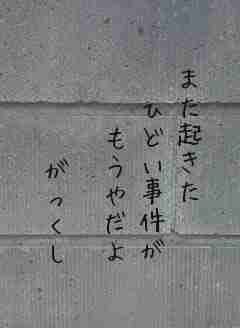 また起きた
ひどい事件が
もうやだよ
がっくし